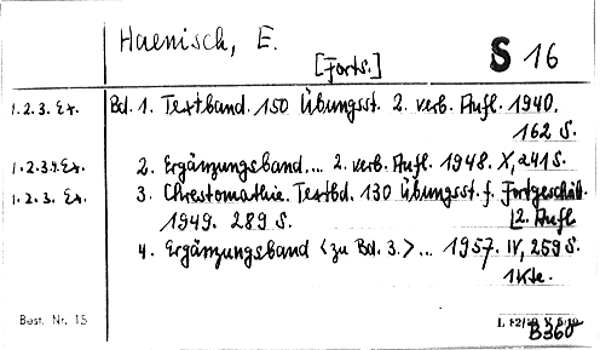 Haenisch, E.
[Forts.]
S 16
1.2.3. Ex. Bd. 1. Textband. 150 Übungsst. 2. verb. Aufl. 1940.
162 S.
1.2.3.4. Ex. 2. Ergänzungsband... 2. verb. Aufl. 1948. X, 241 S.
1.2.3. Ex. 3. Chrestomathie. Textbd. 130 Übungsst. f. Fortgeschr.
1949. 289 S. [2. Aufl
4. Ergänzungsband <zu Bd. 3.>... 1957. IV, 259 S.
1 Kte.
Best. Nr. 15
B360